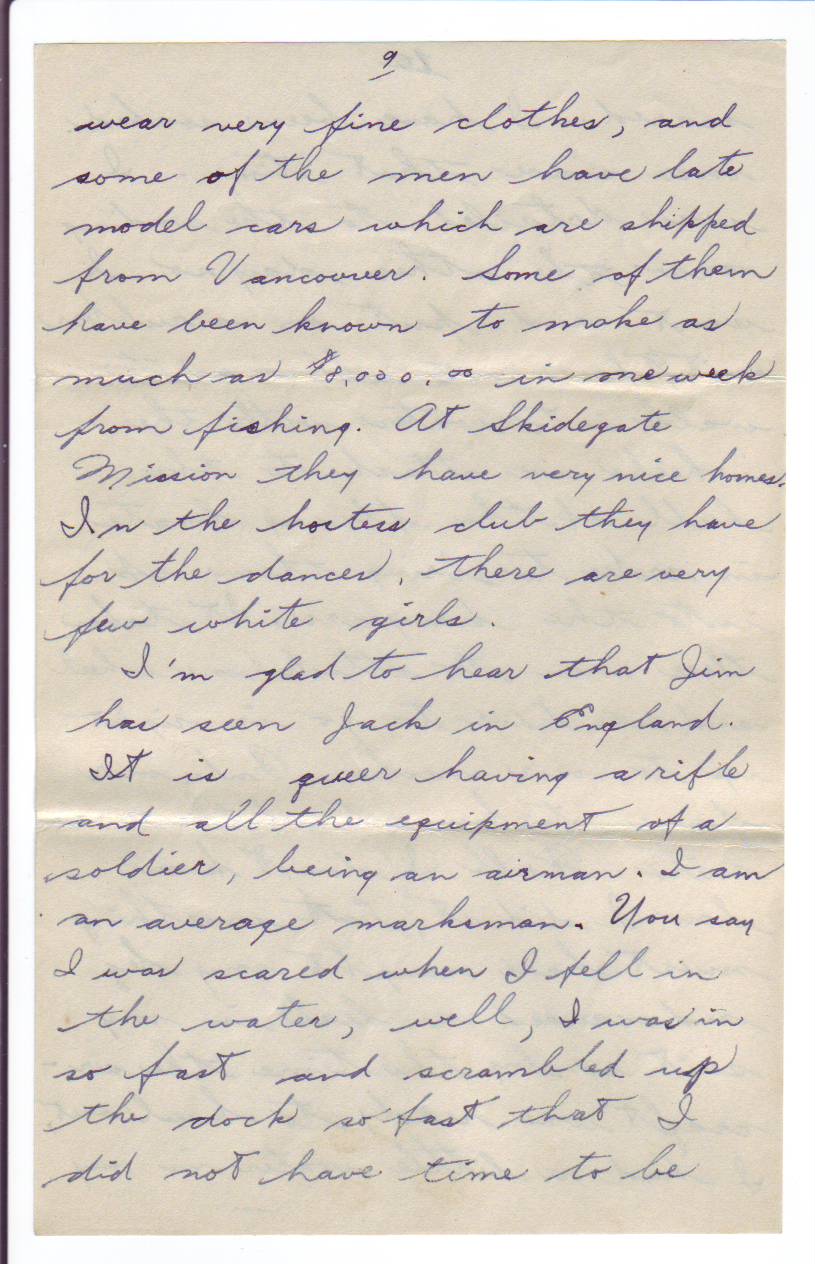 9
wear very fine clothes, and
some of the men have late
model cars which are shipped
from Vancouver. Some of them
have been known to make as
much as $8,000.00 in one week
from fishing. At Skidegate
Mission they have very nice homes.
In the hostess club they have
for the dances, there are very
few white girls.
I'm glad to hear that Jim
has seen Jack in England.
It is queer having a rifle
and all the equipment of a
soldier, being an airman. I am
an average marksman. You say
I was scared when I fell in
the water, well, I was in
so fast and scrambled up
the dock so fast that I
did not have time to be